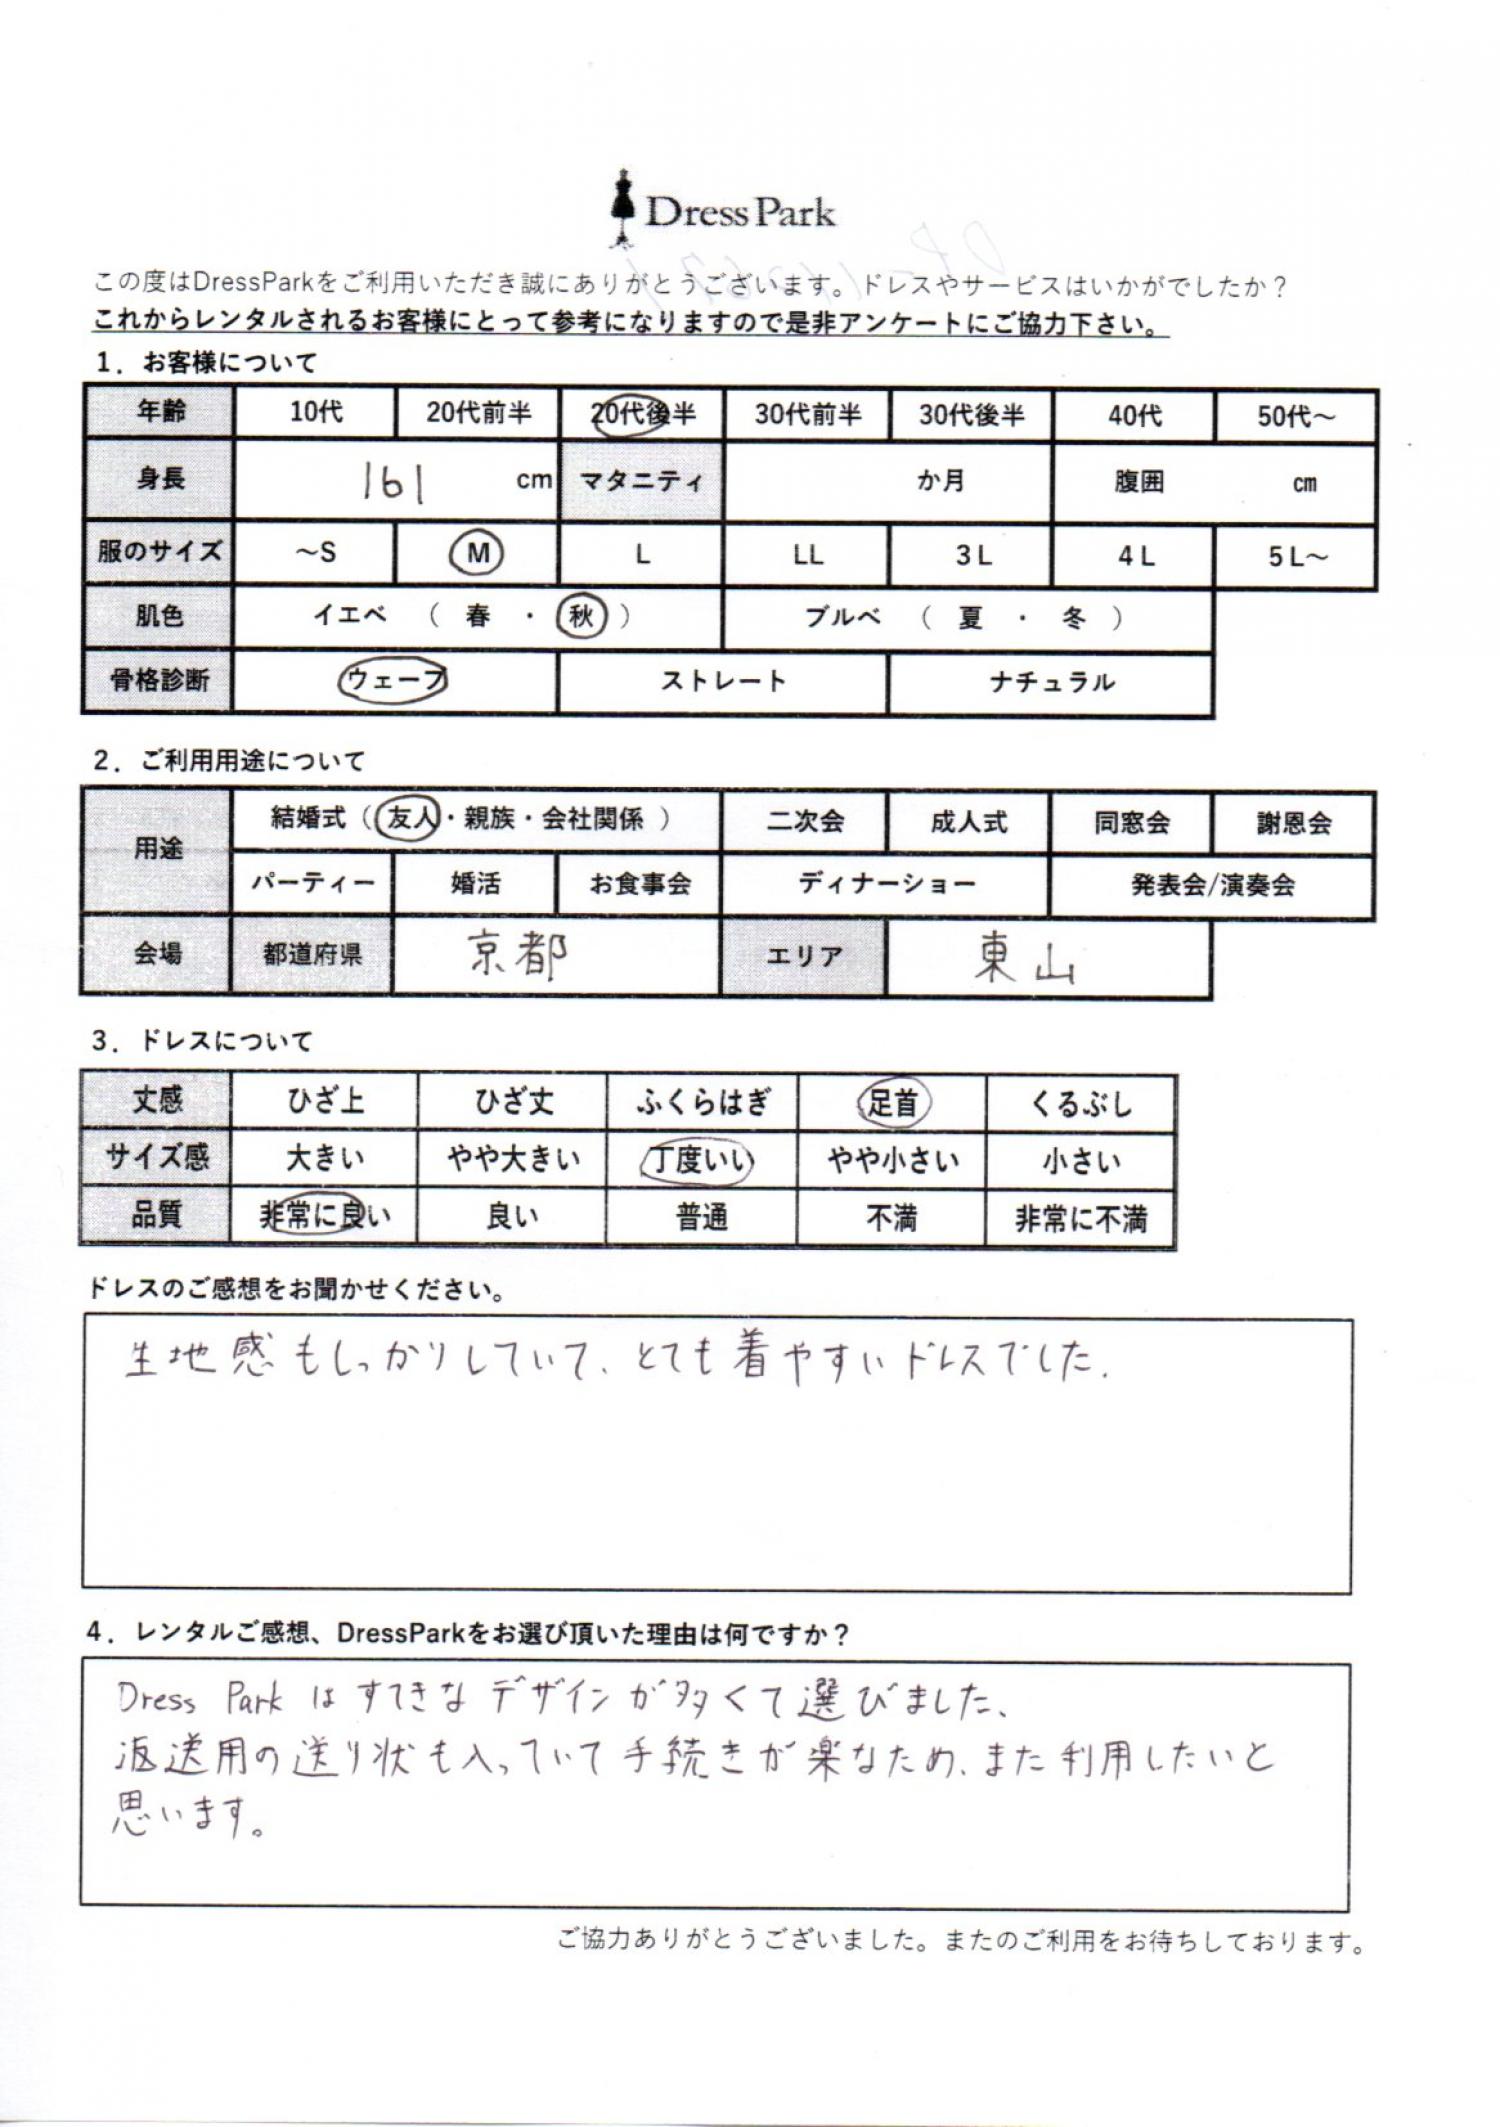 Dress Park
この度はDressParkをご利用いただき誠にありがとうございます。ドレスやサービスはいかがでしたか？
これからレンタルされるお客様にとって参考になりますので是非アンケートにご協力下さい。
1．お客様について
年齢 10代 20代前半 20代後半 30代前半 30代後半 40代 50代～
身長 161 cm マタニティ か月 腹囲 cm
服のサイズ ～S M L LL 3L 4L 5L～
肌色 イエベ （ 春 ・ 秋 ） ブルベ （ 夏 ・ 冬 ）
骨格診断 ウェーブ ストレート ナチュラル
2．ご利用用途について
用途 結婚式（ 友人・親族・会社関係 ） 二次会 成人式 同窓会 謝恩会
パーティー 婚活 お食事会 ディナーショー 発表会/演奏会
会場 都道府県 京都 エリア 東山
3．ドレスについて
丈感 ひざ上 ひざ丈 ふくらはぎ 足首 くるぶし
サイズ感 大きい やや大きい 丁度いい やや小さい 小さい
品質 非常に良い 良い 普通 不満 非常に不満
ドレスのご感想をお聞かせください。
生地感もしっかりしていて、とても着やすいドレスでした.
4．レンタルご感想、DressParkをお選び頂いた理由は何ですか？
Dress Park はすてきなデザインが多くて選びました、
返送用の送り状も入っていて手続きが楽なため、また利用したいと
思います。
ご協力ありがとうございました。またのご利用をお待ちしております。